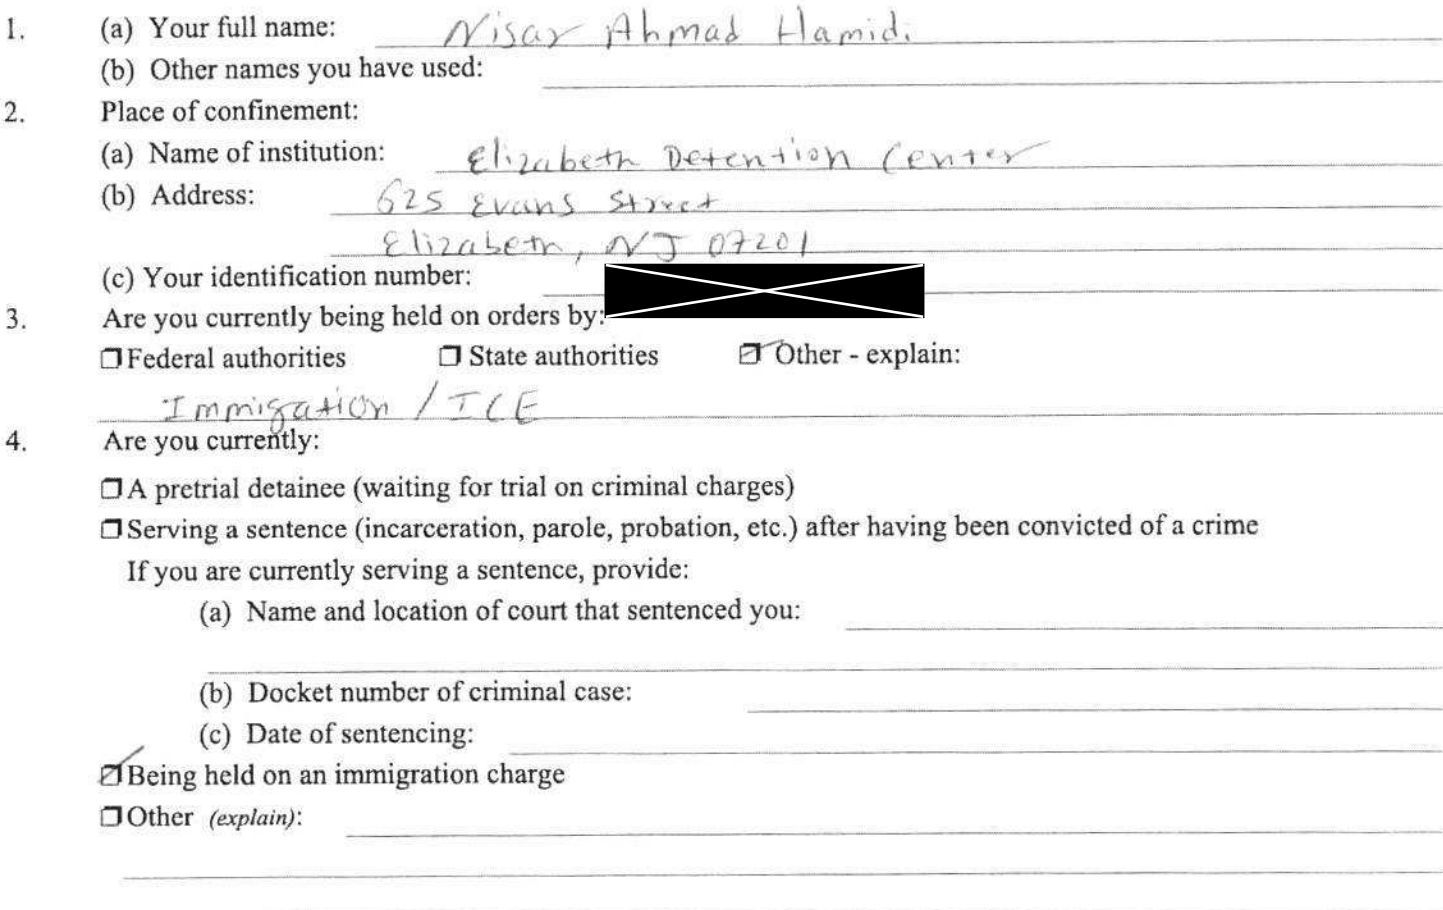 1. (a) Your full name: Nisar Ahmad Hamidi
(b) Other names you have used:
2. Place of confinement:
(a) Name of institution: Elizabeth Detention Center
(b) Address: 625 Evans Street
Elizabeth, NJ 07201
(c) Your identification number:
3. Are you currently being held on orders by:
☐ Federal authorities ☐ State authorities ☑ Other - explain:
Immigation / ICE
4. Are you currently:
☐ A pretrial detainee (waiting for trial on criminal charges)
☐ Serving a sentence (incarceration, parole, probation, etc.) after having been convicted of a crime
If you are currently serving a sentence, provide:
(a) Name and location of court that sentenced you:
(b) Docket number of criminal case:
(c) Date of sentencing:
☑ Being held on an immigration charge
☐ Other (explain):